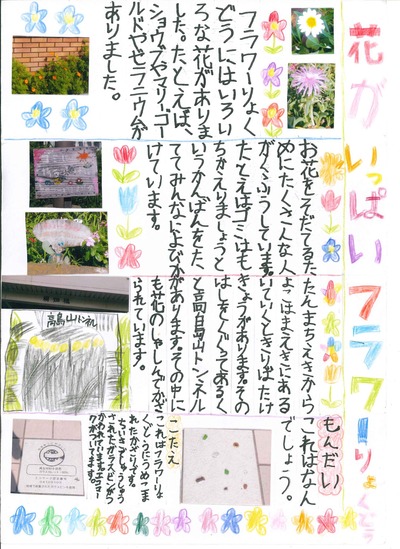 花がいっぱいフラワーりょくどう
フラワーりょく
どうにはいろい
ろな花がありま
した。たとえば、
マリーゴー
ルドやゼラニウムが
ありました。
お花をそだてるた
めにたくさんな人
がくふうしています。
たとえばゴミはも
ちかえりましょうと
いうかんばんをた
ててみんなによびか
けています。
たんまちえきから
よこはまえきにある
いていくときりばたけ
きょうがあります。その
はしをくぐってあるく
と高島山トンネル
があります。その中に
も花のしゃしんがかざ
られています。
高島山トンネル
もんだい
これはなん
でしょう。
こたえ
これはフラワーりょ
くどうにうめこま
れたかざりです。
されたガラスビンがつ
かわれています。エコマー
クがついてます。